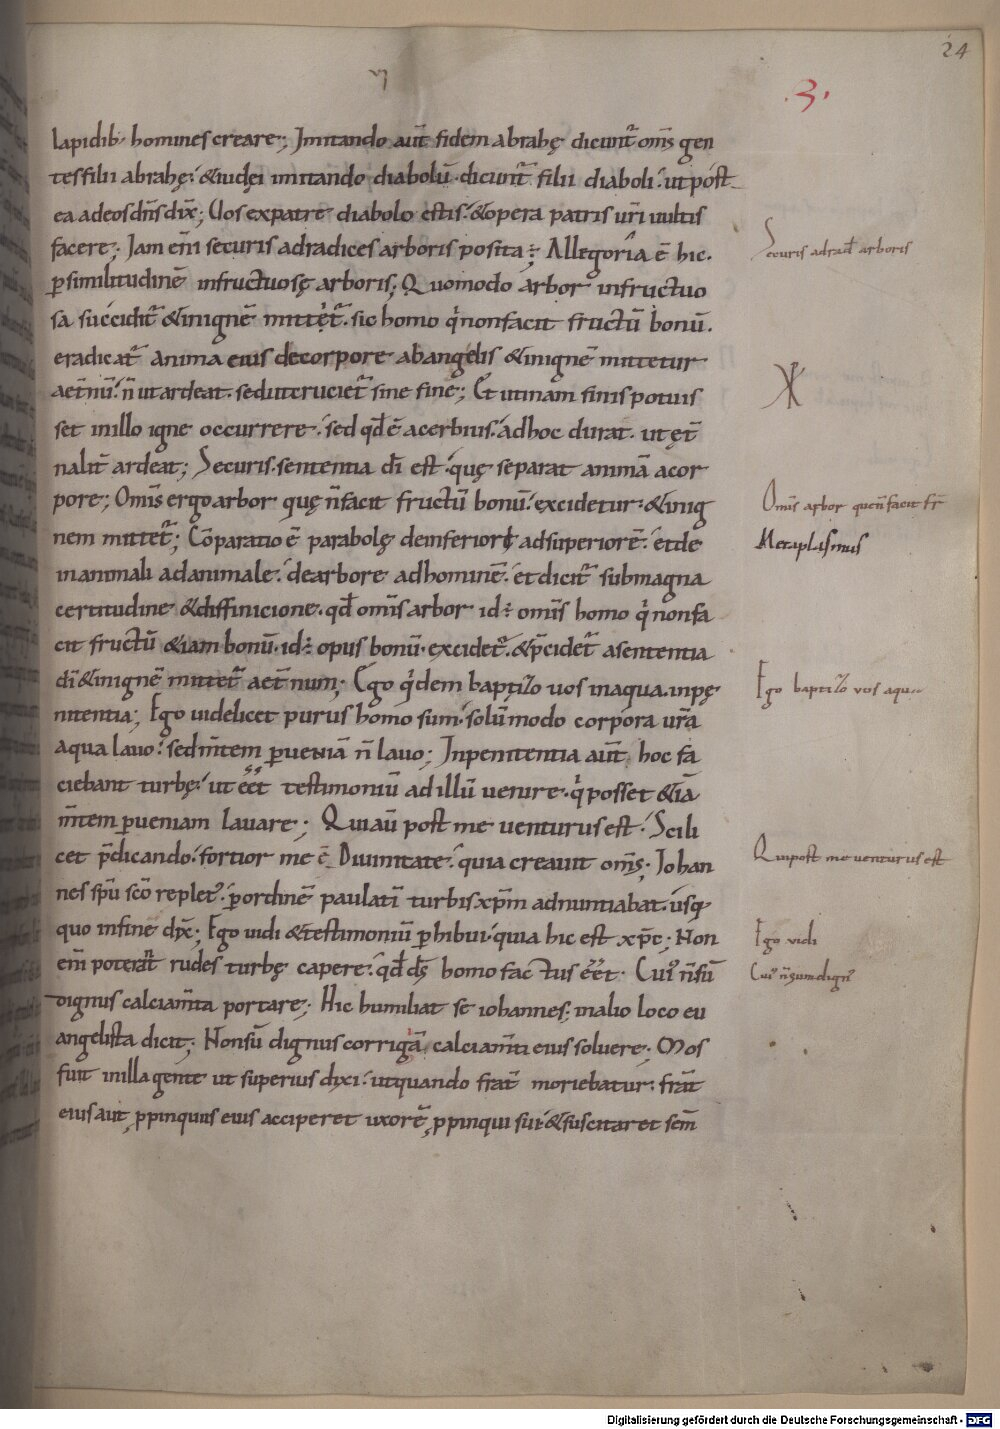 24
.3.
lapidib; homines creare; Imitando aut̄ fidem abrahę dicunt̄ om̄s gen
tes filii abrahę: & iudęi imitando diabolū dicunt̄ filii diaboli: ut post
ea ad eos dn̄s dix̄; Uos ex patre diabolo estis: & opera patris ur̄i uultis
facere; Iam eni̅ securis ad radices arboris posita ÷; Allegoria ē hic.
p̱ similitudinē infructuosę arboris; Quomodo arbor infructuo
sa succidit̄ & in ignē mittet̄. sic homo q̇ non facit fructū bonū.
eradicat̄ anima eius de corpore ab angelis & in ignē mittetur
aet̄nū: n̄ ut ardeat. sed ut crucietr̄ sine fine; Et utinam finis potuis
set in illo igne occurrere: sed qd̄ ē acerbius: ad hoc durat. ut ęt̄
nalit̄ ardeat; Securis: sententia dī est: quę separat animā a cor
pore; Om̄is ergo arbor quę n̄ facit fructū bonū: excidetur: & in ig
nem mittet̄; Cōparatio ē parabolę de inferiori ad superiorē: et de
inanimali ad animale: de arbore ad hominē. et dicit̄ sub magna
certitudine & diffinicione. qd̄ om̄is arbor id÷ om̄is homo q̇ non fa
cit fructū & iam bonū. id÷ opus bonū. excidet̄. & p̄cidet̄ a sententia
dī & in ignē mittet̄ aet̄num; Ego q̇dem baptizo uos in aqua. in pę
nitentia; Ego uidelicet purus homo sum: solūmodo corpora ur̄a
aqua lauo: sed m̄tem p̱ ueniā n̄ lauo; In penitentia aut̄ hoc fa
ciebant turbę: ut eēt testimoniū ad illū uenire. q̇ posset & iā
m̄tem p̱ ueniam lauare; Qui aū post me uenturus est. Scili
cet p̄dicando: fortior me ē. Diuinitate: quia creauit om̄s. Iohan
nes sp̄u sc̄o replet᾽: p̱ ordinē paulatī turbis xp̄m adnuntiabat. usq;
quo in fine dix̄; Ego uidi & testimoniū p̱hibui: quia hic est xp̄c; Non
eni̅ poterat̄ rudes turbę capere: qd̄ d̄s homo factus eēt. Cui᾽ n̄ sū
dignus calciam̄ta portare; Hic humiliat se iohannes; in alio loco eu
angelista dicit; Non sū dignus corrigā calciam̄ti eius soluere; Mos
fuit in illa gente ut superius dixi: ut quando frat̄ moriebatur: frat̄
eius aut ꝓpinquus eius acciperet uxorē ꝓpinqui sui: & suscitaret sem̄
Securis ad rad̄ arboris
Om̄is arbor que n̄ facit fr̄
Metaplasmus
Ego baptizo vos aqua
Qui post me uenturus est
Ego vidi
Cui᾽ n̄ sum dign᾽
Digitalisierung gefördert durch die Deutsche Forschungsgemeinschaft - DFG